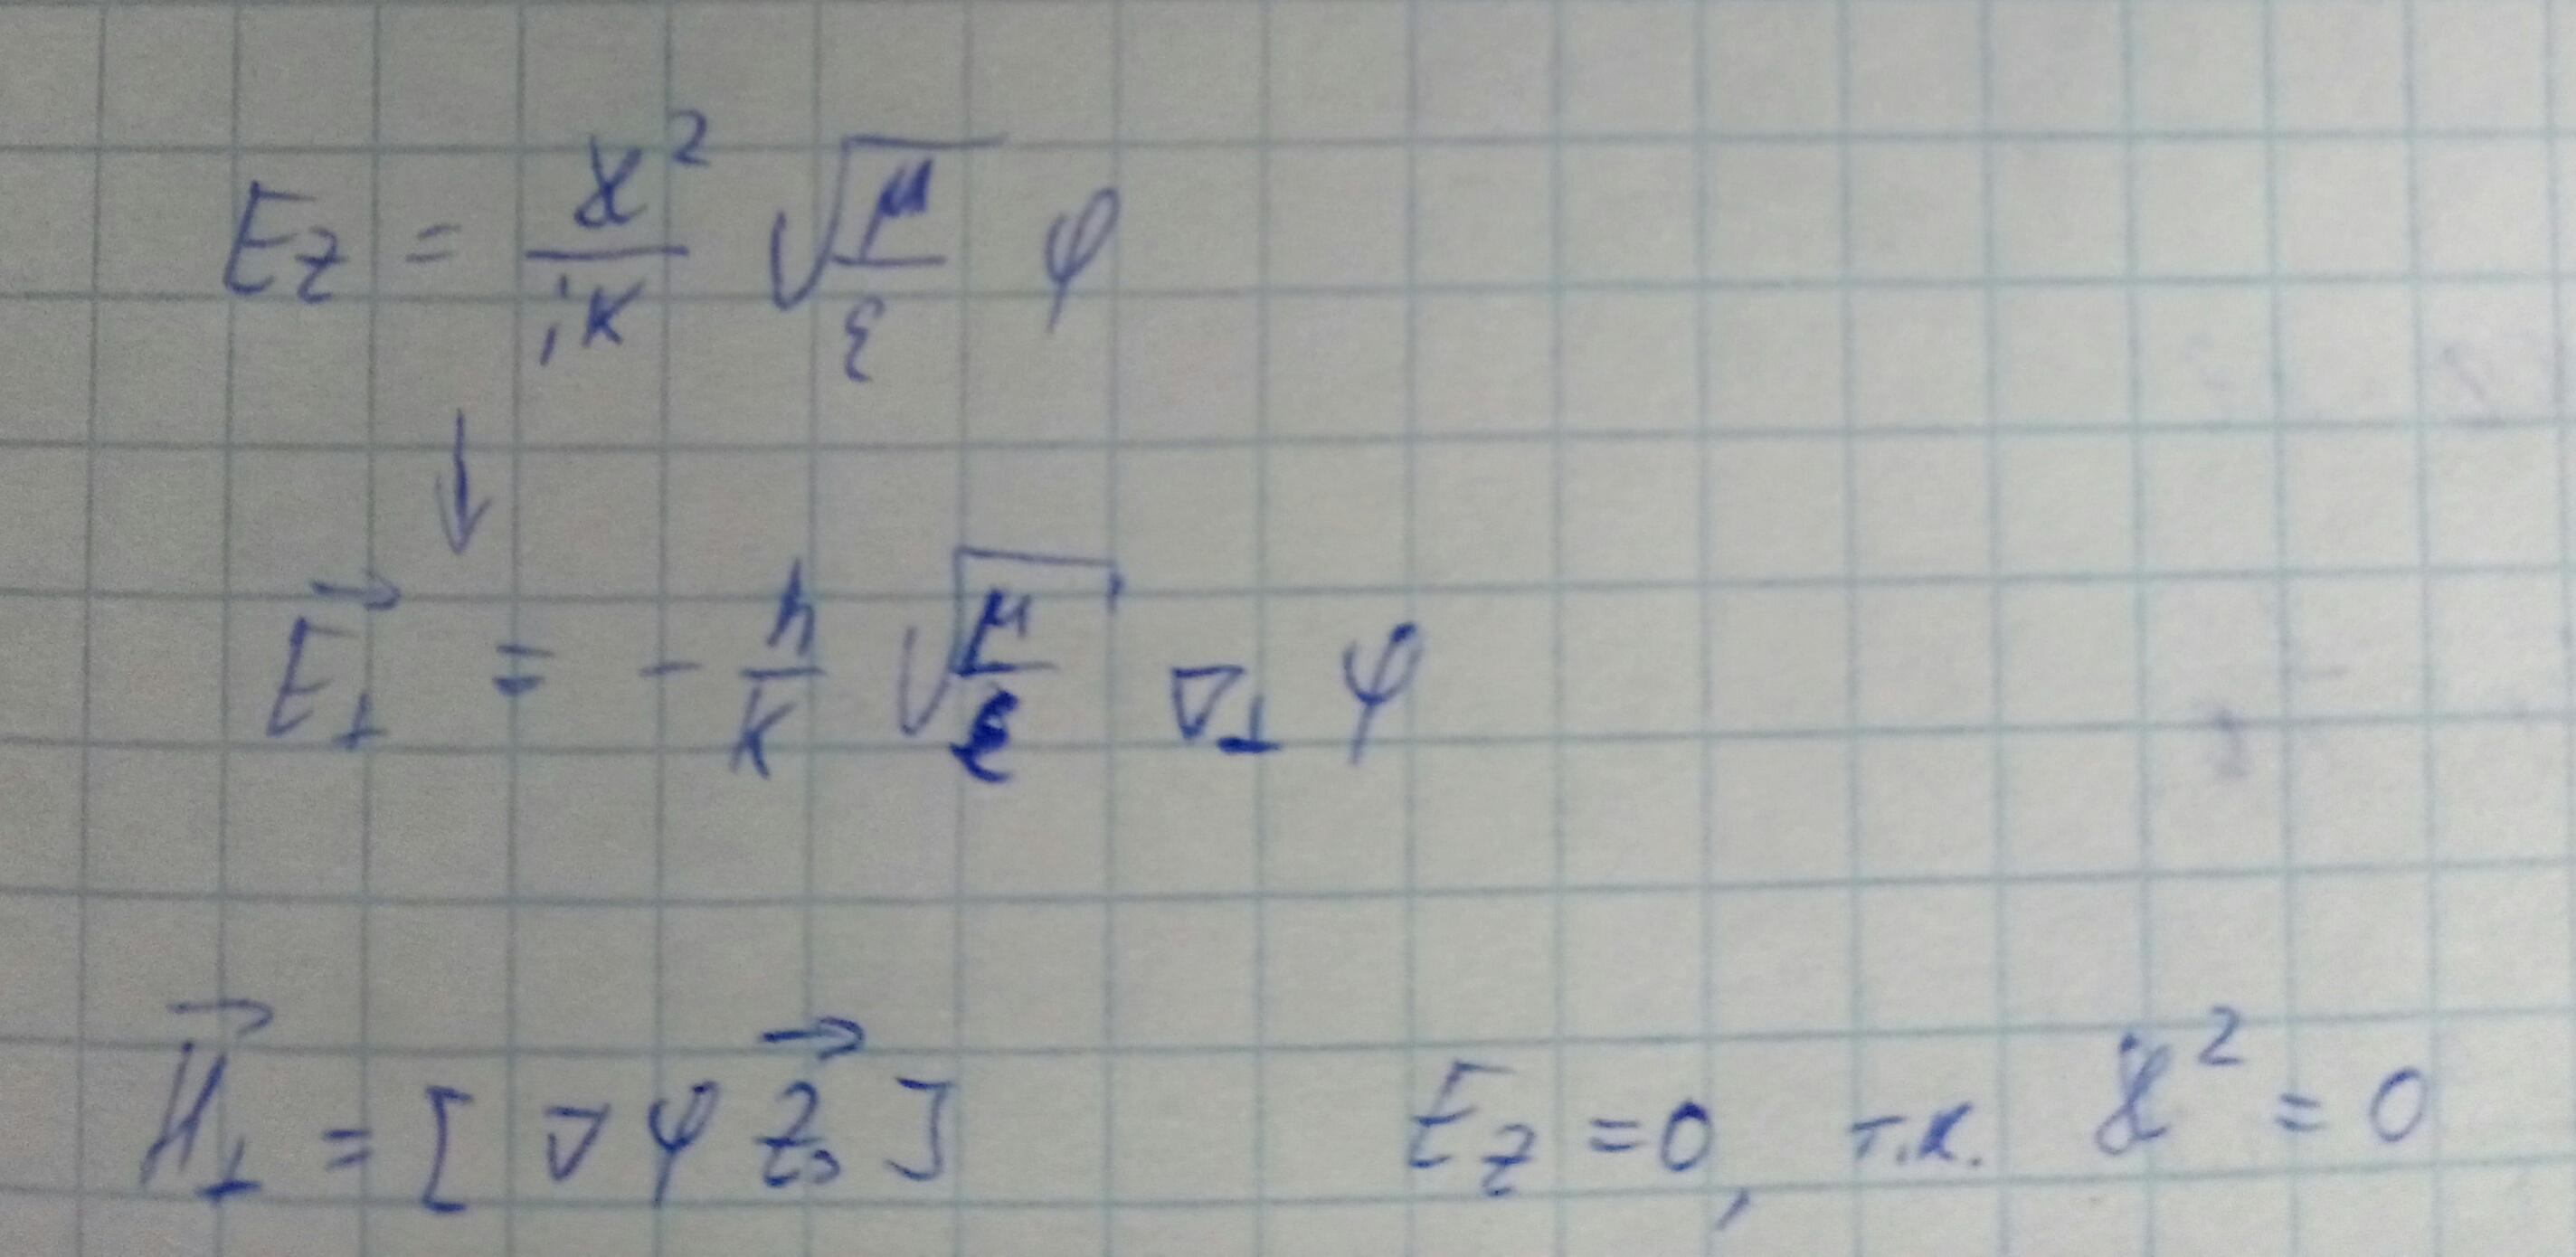 E_z = \frac{ϰ^2}{iκ} \sqrt{\frac{μ}{ε}} φ
↓
\vec{E}_⊥ = - \frac{h}{κ} \sqrt{\frac{μ}{ε}} ∇_⊥ φ
\vec{H}_⊥ = [∇ φ \vec{z}_0] E_z = 0, т.к. ϰ^2 = 0